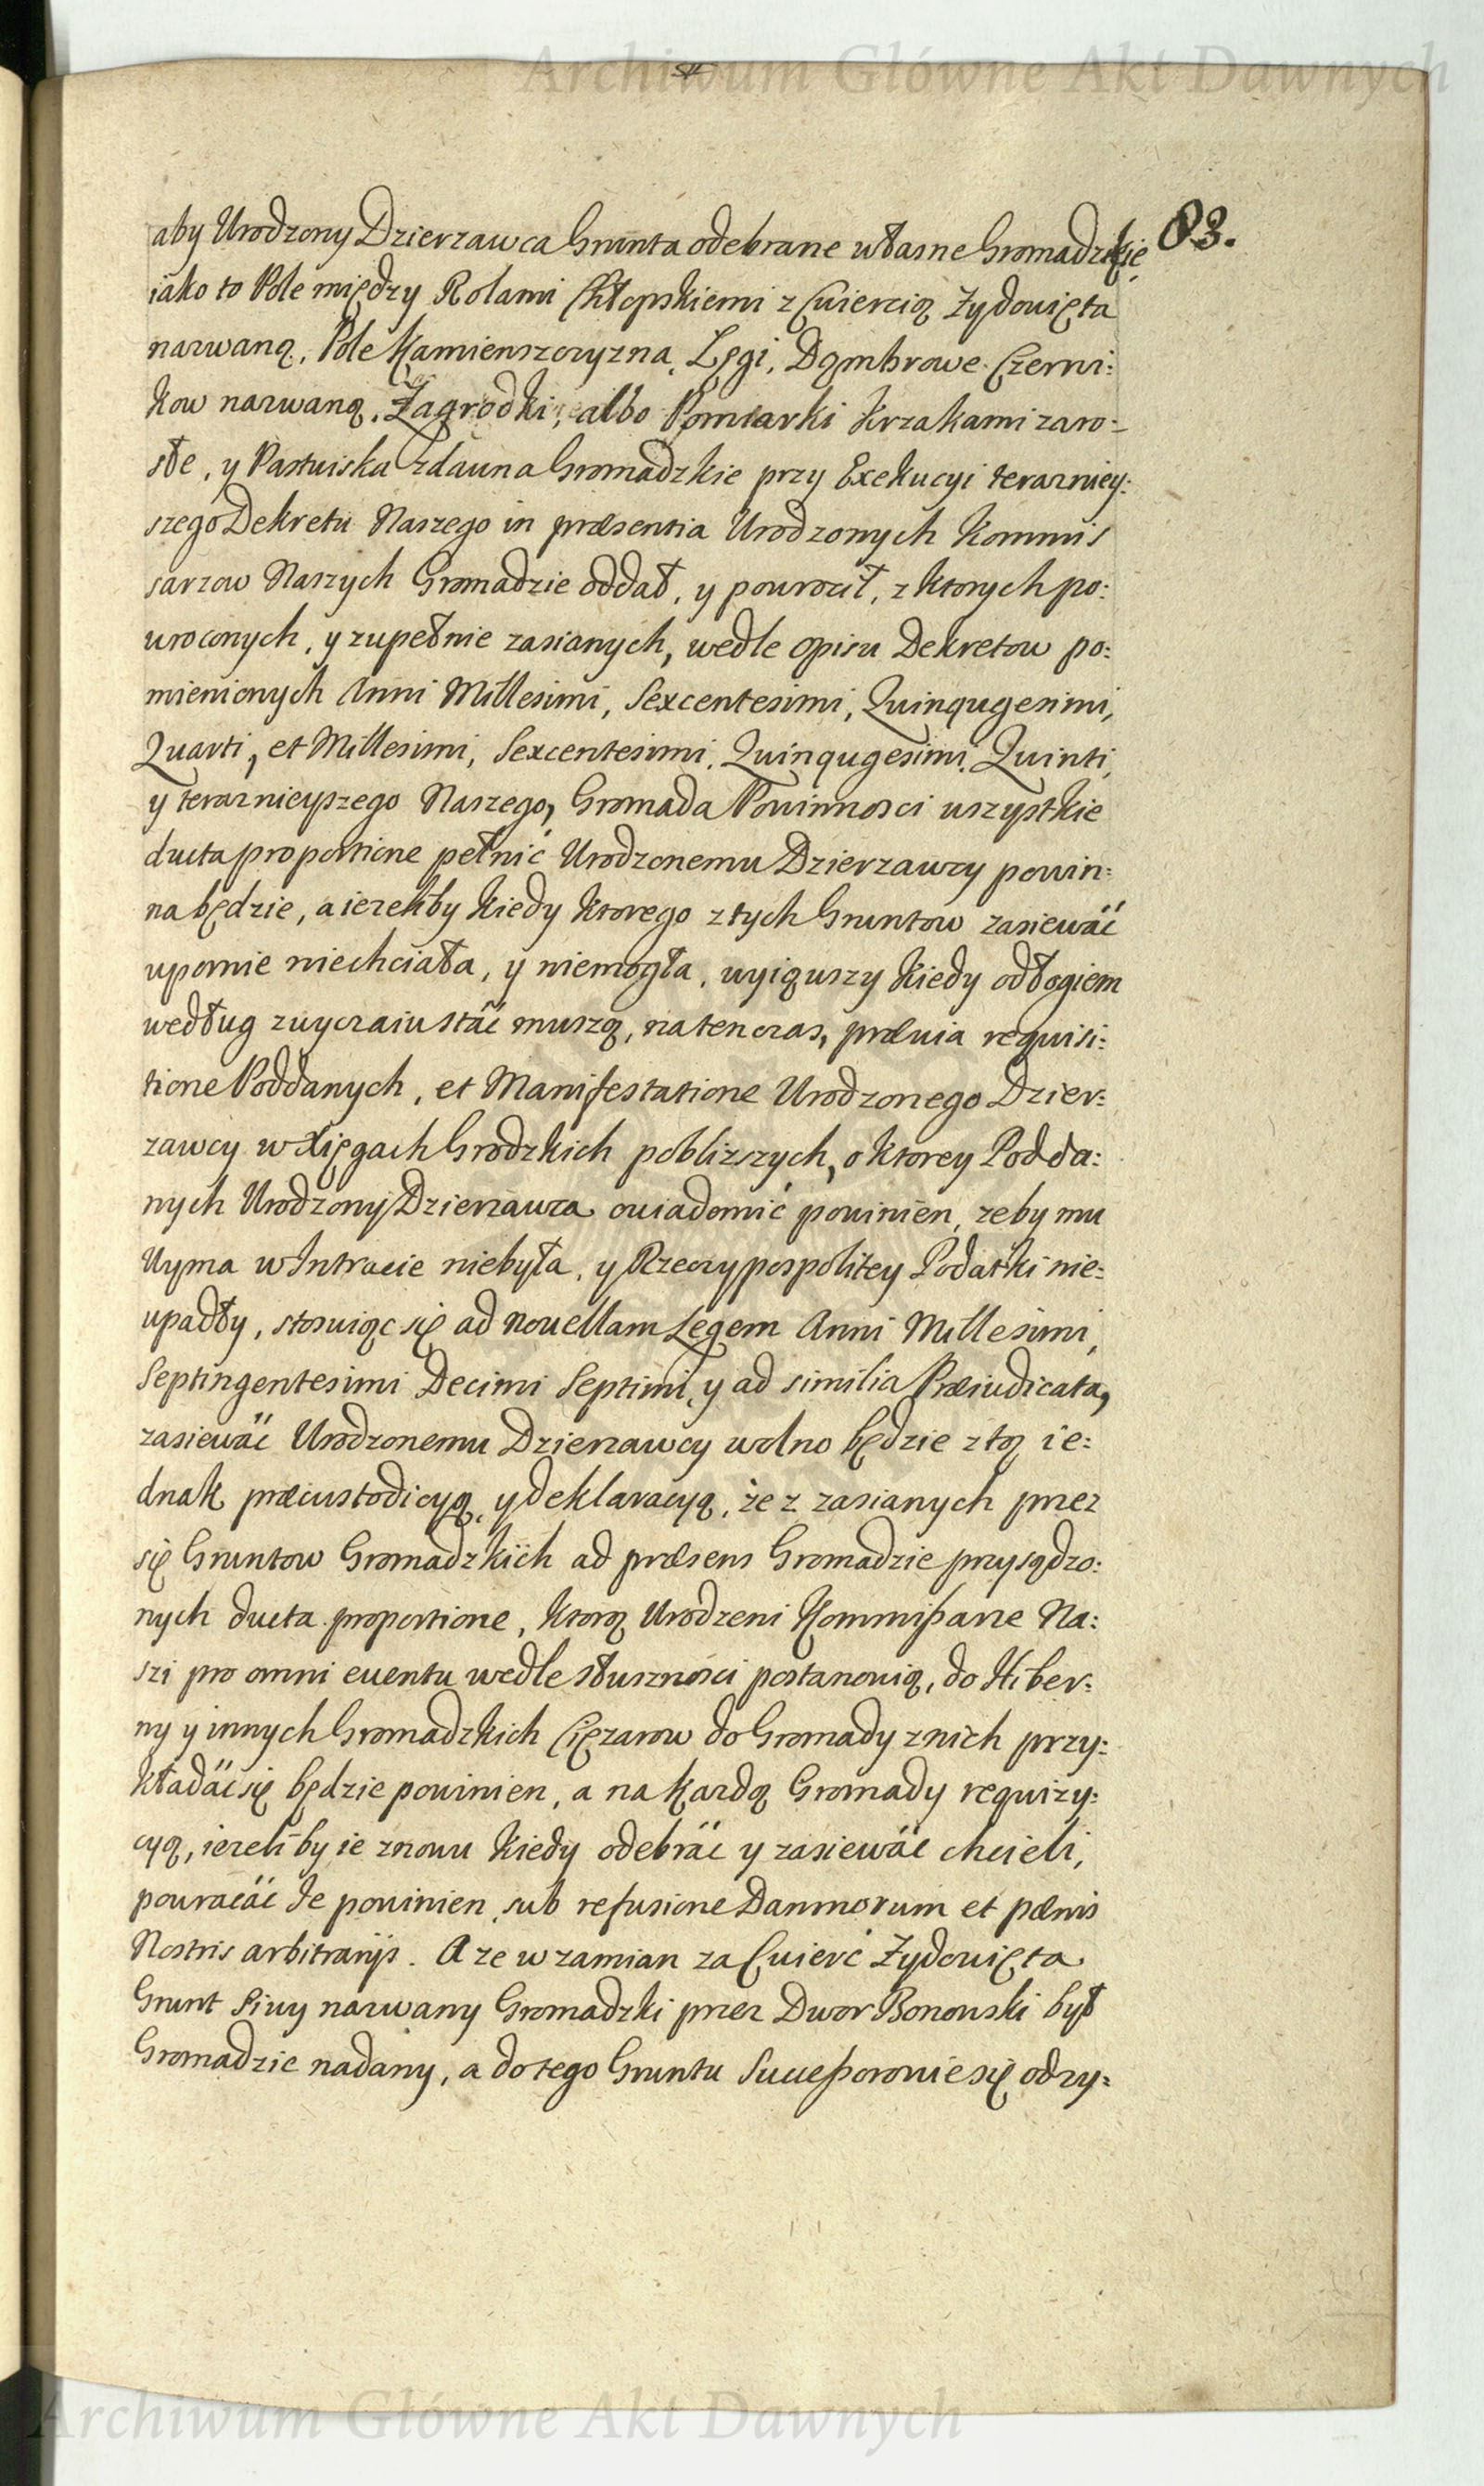 Archiwum Główne Akt Dawnych
83.
aby Urodzony Dzierzawca Grunta odebrane własne Gromadzkie
iako to Pole między Rolami Chłopskiemi z Cwiercią Zydowięta
nazwaną, Pole Kamienszczyzna, Lęgi, Dąmbrowe Czerni:
kow nazwaną, Zagrodki, albo Pomiarki krzakami zaro-
słe, y Pastwiska zdawna Gromadzkie przy Exekucyi terazniey:
szego Dekretu Naszego in præsentia Urodzonych Kommis
sarzow Naszych Gromadzie oddał, y powrocił, z ktorych po:
wroconych, y zupełnie zasianych, wedle opisu Dekretow po:
mienionych Anni Millesimi, Sexcentesimi, Quinqugesimi,
Quarti, et Millesimi, Sexcentesimi, Quinqugesimi, Quinti,
y teraznieyszego Naszego, Gromada Powinnosci wszystkie
ducta proportione pełnić Urodzonemu Dzierzawcy powin:
na będzie, a iezeliby kiedy ktorego z tych Gruntow zasiewać
upornie niechciała, y niemogła, wyiąwszy kiedy odłogiem
według zwyczaiu stać muszą, na ten czas, prævia requisi:
tione Poddanych, et Manifestatione Urodzonego Dzier:
zawcy w Xięgach Grodzkich poblizszych, o ktorey Podda:
nych Urodzony Dzierzawca owiadomić powinien, zeby mu
Uyma w Intracie niebyła, y Rzeczypospolitey Podatki nie:
upadły, stosuiąc się ad novellam Legem Anni Millesimi,
Septingentesimi Decimi Septimi, y ad similia Præiudicata,
zasiewać Urodzonemu Dzierzawcy wolno będzie z tą ie:
dnak præcustodicyą, y deklaracyą, że z zasianych przez
się Gruntow Gromadzkich ad præsens Gromadzie przysądzo:
nych ducta proportione, ktorą Urodzeni Kommißarze Na:
szi pro omni eventu wedle słusznosci postanowią, do Hiber:
ny y innych Gromadzkich Ciężarow do Gromady z nich przy:
kładać się będzie powinien, a na kazdą Gromady requizy:
cyą, iezeliby ie znowu kiedy odebrać y zasiewać chcieli,
powracać Je powinien, sub refusione Damnorum et pœnis
Nostris arbitrarijs. A ze w zamian za Cwierć Zydowięta
Grunt Siwy nazwany Gromadzki przez Dwor Bonowski był
Gromadzie nadany, a do tego Gruntu Succeßorowie się odzy:
Archiwum Główne Akt Dawnych